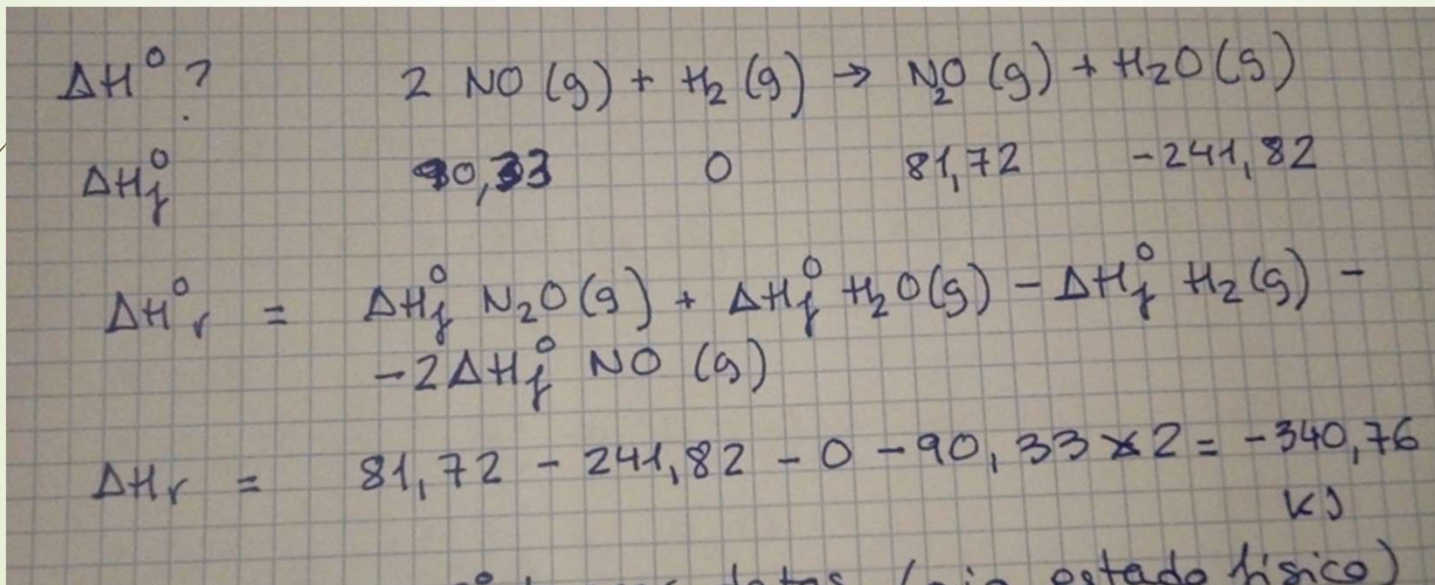 ΔH° ? 2 NO (g) + H₂ (g) → N₂O (g) + H₂O (g)
ΔH°f 90,33 0 81,72 -241,82
ΔH°r = ΔH°f N₂O (g) + ΔH°f H₂O (g) - ΔH°f H₂ (g) -
-2ΔH°f NO (g)
ΔHr = 81,72 - 241,82 - 0 - 90,33 x 2 = -340,76
KJ
estado físico)